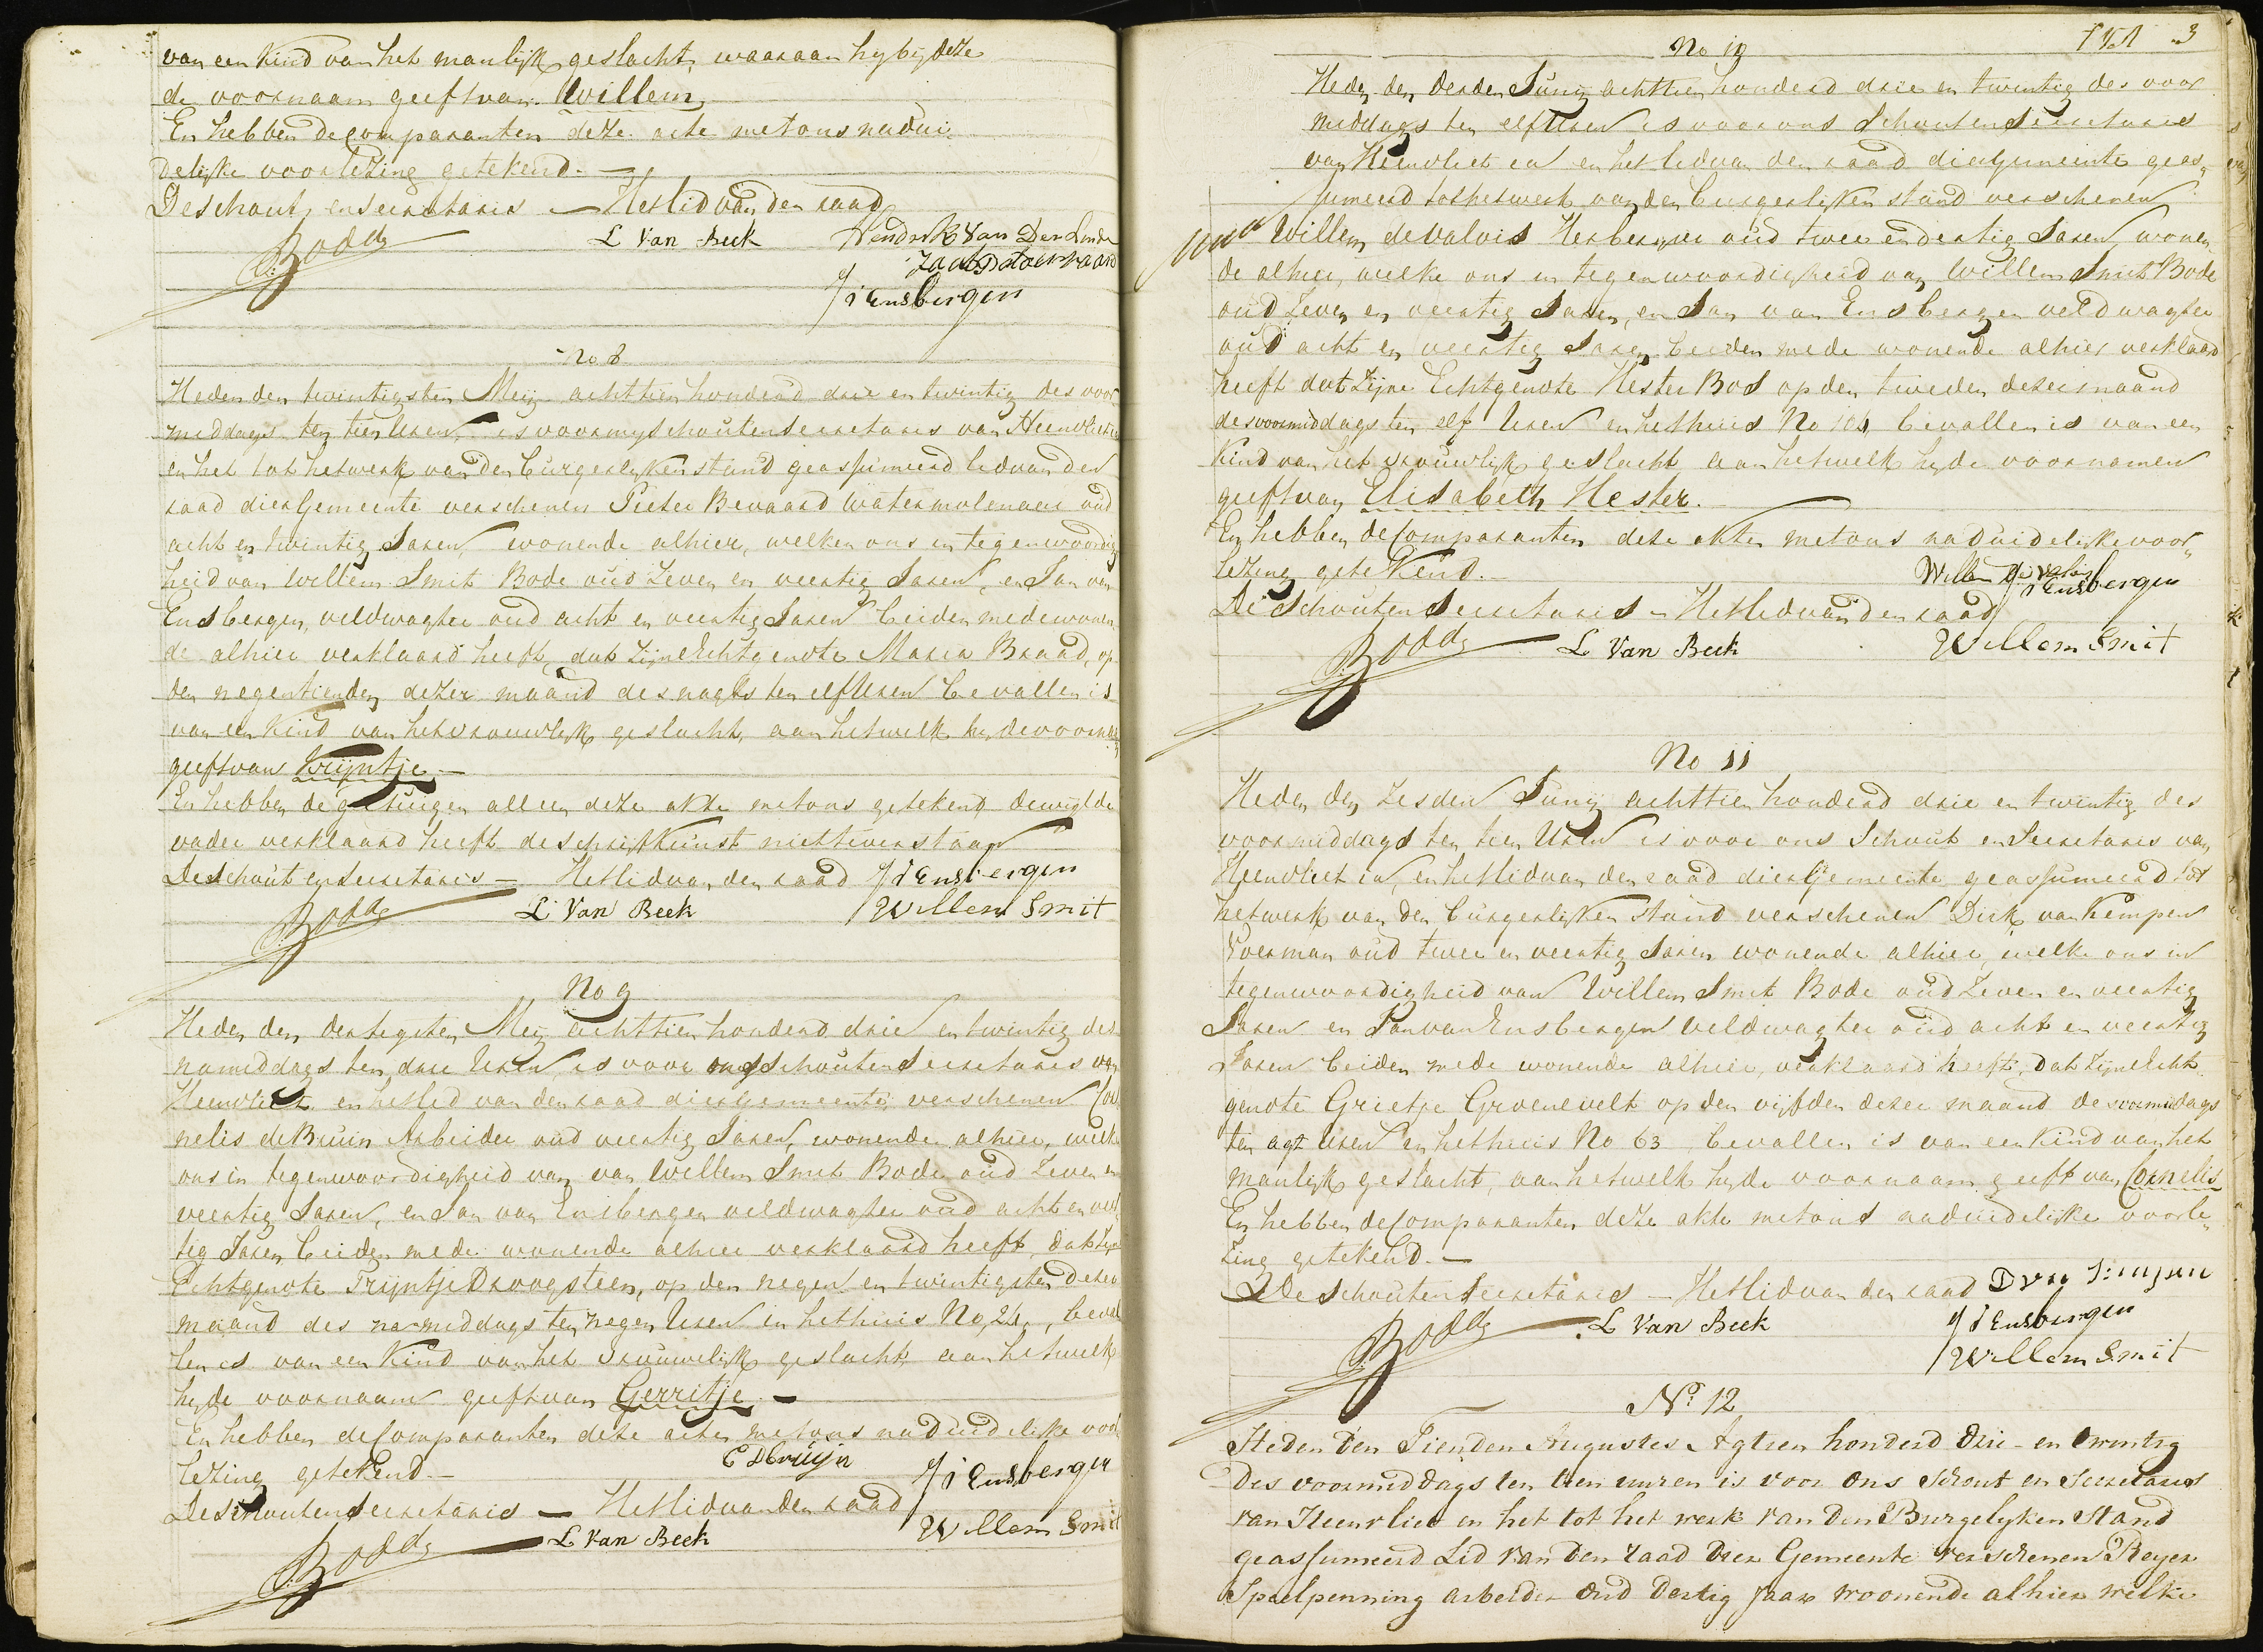 van een Kind van het manlijk geslacht, waaraan hy by deze
de voornaam geeft van Willem
En hebben de comparanten deze acte met ons na dui-
delijke voorlezing getekend. —
De schout en secretaris — Het lid van den raad
L Van Beek Hendrik Van Der Linde
J V Ensbergen
No 8
Heden den twintigsten Meij achttien honderd drie en twintig des voor
middags ten tien Uren, is voor my Schout en Secretaris van Heenvliet
en het tot het werk van den burgerlyken stand geassumeerd lid van den
raad dier Gemeente verschenen Pieter Bevaard watermolenaar oud
acht en twintig Jaren, wonende alhier, welken ons in tegenwoordig
heid van Willem Smit Bode oud Zeven en veertig Jaren, en Jan van
Ensbergen, veldwagter oud acht en veertig Jaren beiden mede wonen
de alhier verklaard heeft, dat zijne Echtgenote Maria Braad, op
den negentienden dezer maand des nagts ten elf Uren bevallen is
van een Kind van het vrouwlyk geslacht, aan het welk hy de voorna
geeft van Krijntje —
En hebben de getuigen alleen deze akte met ons getekend dewyl de
vader verklaard heeft de schrijfkunst niet te verstaan
De Schout en Secretaris — Het lid van den raad J V Ensbergen
L Van Beek Willem Smit
No 9
Heden den dertigsten Meij achttien honderd drie en twintig des
namiddags ten drie Uren, is voor ons Schout en Secretaris van
Heenvliet en het lid van den raad dier Gemeente, verschenen Cor
nelis de Bruin Arbeider oud veertig Jaren, wonende alhier, welke
ons in tegenwoordigheid van van Willem Smit Bode oud Zeven en
veertig Jaren, en Jan van Ensbergen veldwagter oud acht en veer
tig Jaren beiden mede wonende alhier verklaard heeft, dat zyn
Echtgenote Trijntje Droogsteen, op den negen en twintigsten dezer
maand des namiddags ten negen Uren in het huis No 24, beval
len is van een Kind van het vrouwelijk geslacht, aan het welk
hy de voornaam geeft van Gerritje —
En hebben de Comparanten deze acten met ons na duidelijke voor
lezing getekend — C D Bruijn J V Ensbergen
De Schout en Secretaris — Het lid van den raad
L Van Beek Willem Smit
3
No 10
Heden den derden Junij achttien honderd drie en twintig des voor
middags ten elf Uren is voor ons Schout en Secretaris
van Heenvliet ca en het lid van den raad dier Gemeente geas„
sumeerd tot het werk van den burgerlyken stand verschenen
Willem de Valois Herbergier oud twee en dertig Jaren, wonen
de alhier, welke ons in tegenwoordigheid van Willem Smit Bode
oud Zeven en veertig Jaren, en Jan van Ensbergen veldwagter
oud acht en veertig Jaren beiden mede wonende alhier verklaard
heeft dat zijne Echtgenote Hester Bos op den tweeden dezer maand
des voormiddags ten elf Uren in het huis No 104 bevallen is van een
Kind van het vrouwlyk geslacht aan het welk hy de voornamen
geeft van Elisabeth Hester. —
En hebben de Comparanten deze akten met ons na duidelijke voor„
lezing getekend. — Willem de Valois
J V Ensbergen
De Schout en Secretaris — Het lid van den raad
L Van Beek Willem Smit
No 11
Heden den zesden Junij achttien honderd drie en twintig des
voormiddags ten tien Uren is voor ons Schout en Secretaris van
Heenvliet ca, en het lid van den raad dier Gemeente geassumeerd tot
het werk van den burgerlyken stand verschenen Dirk van Kempen
Voerman oud twee en veertig Jaren wonende alhier, welke ons in
tegenwoordigheid van Willem Smit Bode oud Zeven en veertig
Jaren en Jan van Ensbergen Veldwagter oud acht en veertig
Jaren beiden mede wonende alhier, verklaard heeft, dat zijne Echt
genote Grietje Groenevelt op den vijfden dezer maand des voormiddags
ten agt Uren in het huis No 63 bevallen is van een Kind van het
manlijk geslacht, aan het welk hy de voornaam geeft van Cornelis
En hebben de Comparanten deze akte met ons na duidelijke voorle„
zing getekend. —
De Schout en Secretaris — Het lid van den raad D van Kempen
L Van Beek J V Ensbergen
Willem Smit
No. 12
Heden den Tienden Augustus Agtien honderd drie en twintig
des voormiddags ten tien uuren is voor ons Schout en Secretaris
van Heenvliet en het tot het werk van den Burgelyken Stand
geassumeerd Lid van den raad dier Gemeente verschenen Reyer
Speelpenning arbeider oud dertig Jaar woonende alhier welke